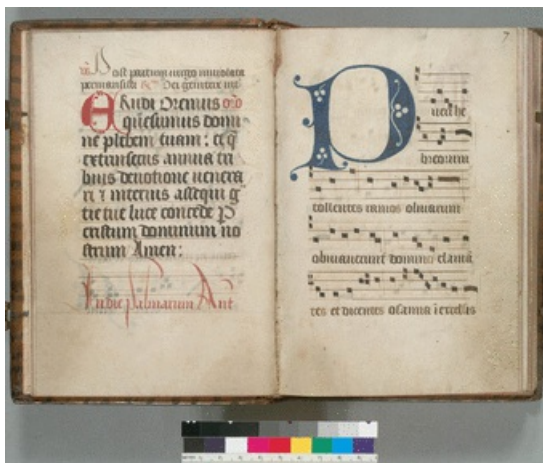 Post partum uirgo inuiolata
permansisti Dei genitrix int
ERudi Oremus oro
quesumus domi
ne plebem tuam : et q
extrinsecus annua tri
buis deuotione uenera
ri z interius assequi g
tie tue luce concede P
cristum dominum no
strum Amen :
In die Palmarum Ant
7
Pueri he
breorum
tollentes ramos oliuarum
obuiauerunt domino clama
tes et dicentes osanna i excelsis